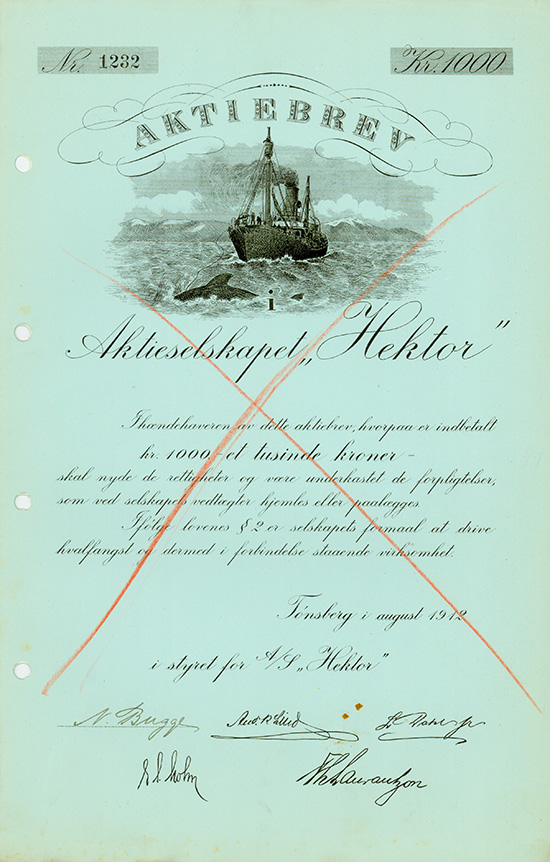 Nr. 1232
Kr. 1000
AKTIEBREV
i
Aktieselskapet „Hektor”
Ihændehaveren av dette aktiebrev, hvorpaa er indbetalt
kr. 1000,- et tusinde kroner -
skal nyde de rettigheter og være underkastet de forpligtelser,
som ved selskapets vedtægter hjemles eller paalægges.
Ifølge lovenes § 2 er selskapets formaal at drive
hvalfangst og dermed i forbindelse staaende virksomhet.
Tønsberg i august 1912
i styret for A/S „Hektor”
N. Bugge